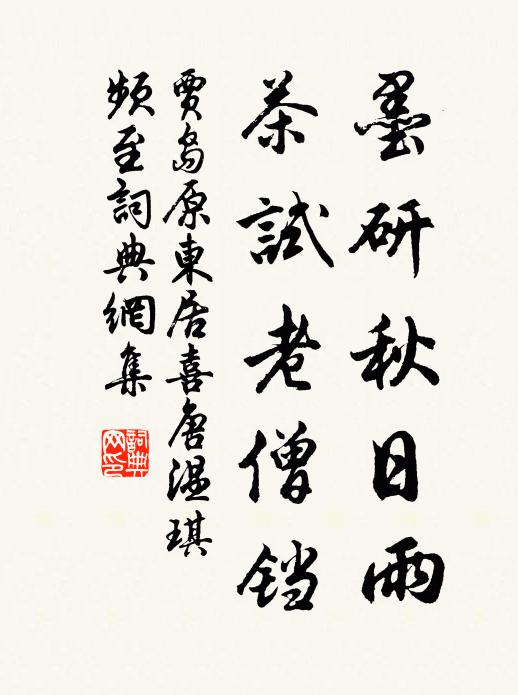 墨研秋日雨
茶試老僧鐺
賈島原東居喜唐温琪
頻至詞典網集
詞典
网印